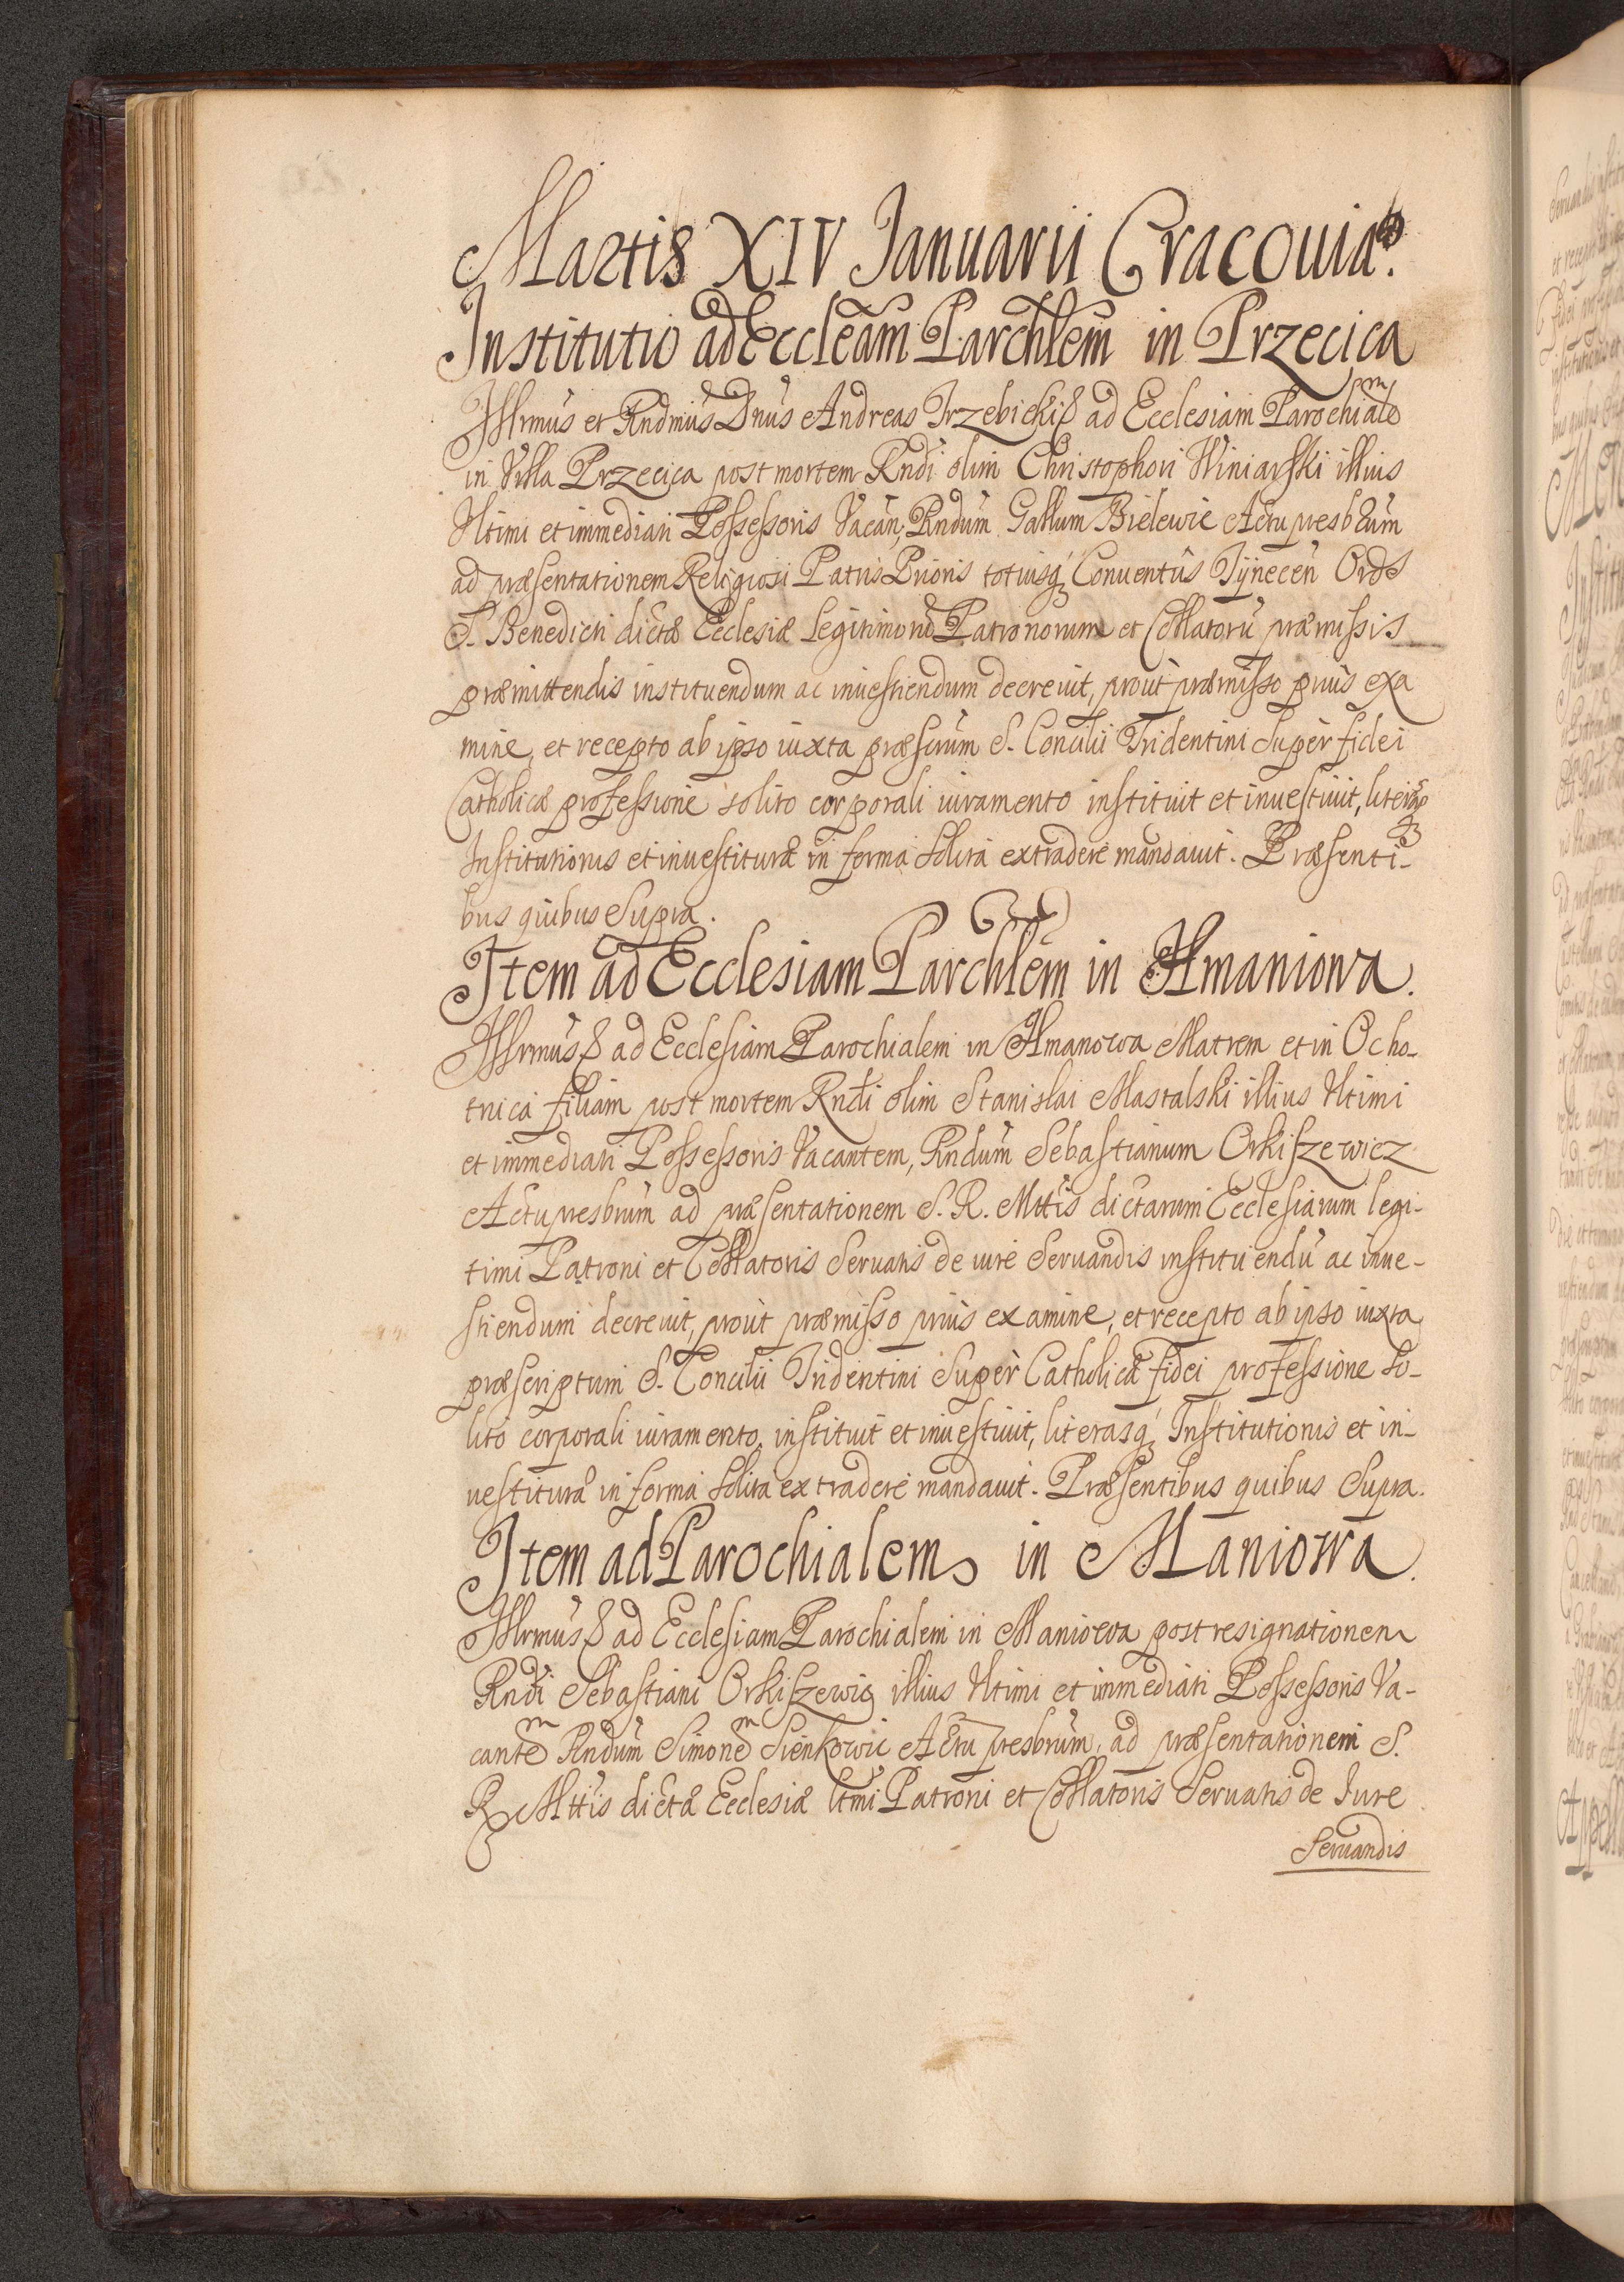 Martis XIV Januarii Cracouiæ.
Institutio ad Eccleãm Parchlem in Przecica
Illrmus et Rndmus Dnus Andreas Trzebicki & ad Ecclesiam Parochialem
in Villa Przecica post mortem Rndi olim Christophori Winiarski illius
Vltimi et immediati Possessoris Vacan, Rndum Gallum Bielewic Actu presbrum
ad præsentationem Religiosi Patris Prioris totiusq Conuentus Tynecen Ords
S. Benedicti dictæ Ecclesiæ Legitimorũ Patronorum et Collatorũ præmissis
præmittendis instituendum ac inuestiendum decreuit, prout præmisso prius exa
mine, et recepto ab ipso iuxta præscrium S. Concilii Tridentini Super fidei
Catholicæ professione solito corporali iuramento instituit et inuestiuit, literasq
Institutionis et inuestituræ in forma solita extradere mandauit. Præsenti-
bus quibus Supra.
Item ad Ecclesiam Parchlem in Kmaniowa.
Illrmus & ad Ecclesiam Parochialem in Kmanowa Matrem et in Ocho-
tnica filiam post mortem Rndi olim Stanislai Mastalski illius Vltimi
et immediati Possessoris Vacantem, Rndum Sebastianum Orkiszewicz
Actu presbrum ad præsentationem S. R. Mttis dictarum Ecclesiarum legi-
timi Patroni et Collatoris Seruatis de iure Seruandis instituendũ ac inue-
stiendum decreuit, prout præmisso prius examine, et recepto ab ipso iuxta
præscriptum S. Concilii Tridentini Super Catholicæ fidei professione so-
lito corporali iuramento, instituit et inuestiuit, literasq Institutionis et in-
uestituræ in forma solita extradere mandauit. Præsentibus quibus Supra.
Item ad Parochialem in Maniowa.
Illrmus & ad Ecclesiam Parochialem in Maniowa post resignationem
Rndi Sebastiani Orkiszewic illius Vltimi et immediati Possessoris Va-
cantem Rndum Simonem Sienkowic Actu presbrum, ad præsentationem S.
R. Mttis dictæ Ecclesiæ ltmi Patroni et Collatoris Seruatis de Iure
Seruandis